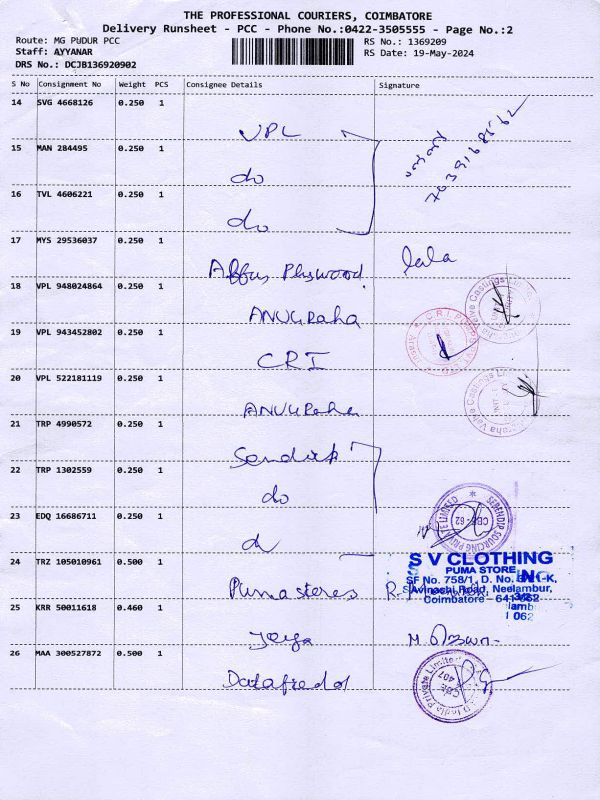 THE PROFESSIONAL COURIERS, COIMBATORE
Delivery Runsheet - PCC - Phone No.:0422-3505555 - Page No.:2
Route: MG PUDUR PCC
Staff: AYYANAR
DRS No.: DCJB136920902
RS No.: 1369209
RS Date: 19-May-2024
S No Consignment No Weight PCS Consignee Details Signature
14 SVG 4668126 0.250 1
VPL
15 MAN 284495 0.250 1
do
16 TVL 4606221 0.250 1
do
17 MYS 29536037 0.250 1
Plywood lala
18 VPL 948024864 0.250 1
ANUGRaha
19 VPL 943452802 0.250 1
CRI
20 VPL 522181119 0.250 1
ANUGRaha
21 TRP 4990572 0.250 1
22 TRP 1302559 0.250 1
do
23 EDQ 16686711 0.250 1
SERENDIP SOURCING PRIVATE LIMITED
CBE - 62
24 TRZ 105010961 0.500 1
Puma stores
S V CLOTHING INC
PUMA STORE
SF No. 758/1, D. No.
Avinachi Road, Neelambur,
Coimbatore - 641 062
25 KRR 50011618 0.460 1
Jeya
26 MAA 300527872 0.500 1
India Private Limited
CBE
407